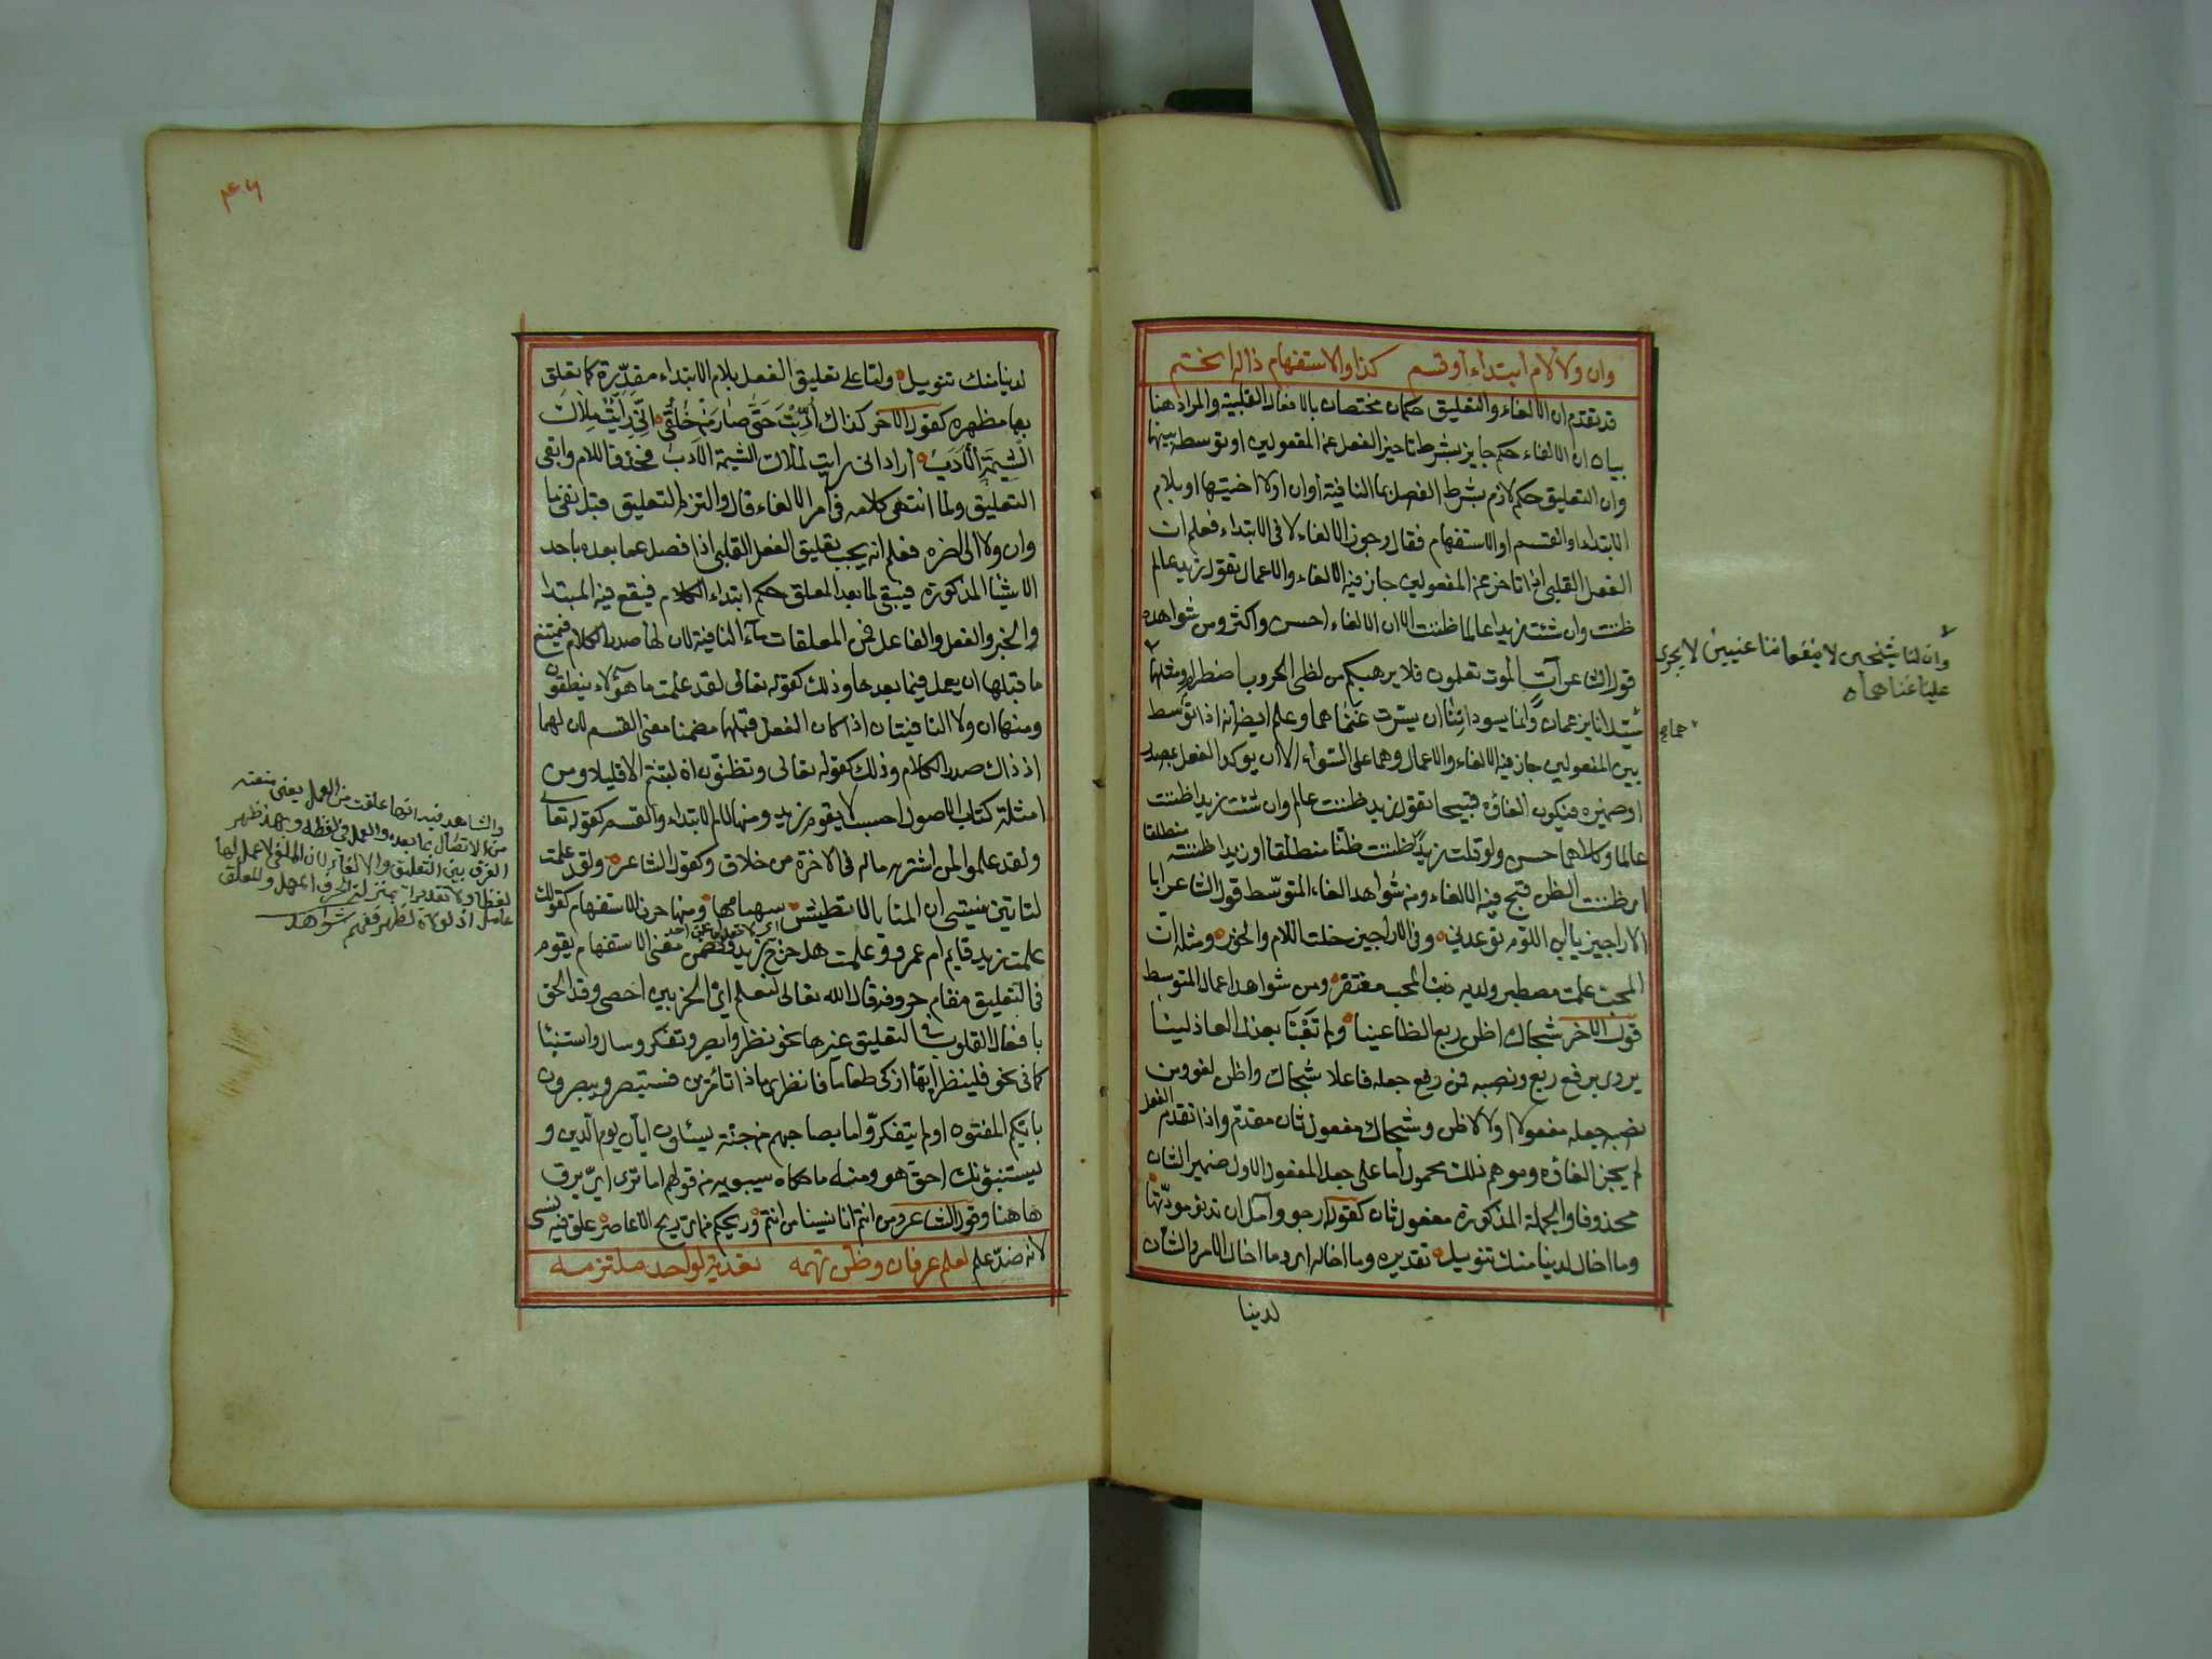 وان ولا لام ابتداء او قسم كذا والاستفهام ذا له انحتم
قد تقدم ان الالغاء والتعليق حكمان مختصان بالافعال القلبية والمراد هنا
بيان ان الالغاء حكم جايز بشرط تاخير الفعل عن المفعولين او توسطه بينهما
وان التعليق حكم لازم بشرط الفصل بما النافية او ان او لا اختيها او بلام
الابتداء او القسم او الاستفهام فقال وجوز الالغاء لا في الابتداء فعلم ان
الفعل القلبي اذا تاخر عن المفعولين جاز فيه الالغاء والاعمال تقول زيد عالم
ظننت وان شئت زيدا عالما ظننت الا ان الالغاء احسن واكثر ومن شواهده
قول الشاعر آت الموت تعلمون فلا يرهبكم من لظى الحروب اضطرام ومثله
سيّدانا يزعمان وانما يسوداننا ان يسّرت غنماهما وعلم ايضا انه اذا توسط
بين المفعولين جاز فيه الالغاء والاعمال وهما على السواء الا ان يوكد الفعل بمصدر
او ضميره فيكون الغاؤه قبيحا تقول زيد ظننت عالم وان شئت زيدا ظننت
عالما وكلاهما حسن ولو قلت زيد ظننت ظنا منطلقا او زيد اظننته منطلقا
اى ظننت الظن قبح فيه الالغاء ومن شواهد الغاء المتوسّط قول الشاعر ابا
الاراجيز يا ابن اللؤم توعدني وفى الاراجيز خلت اللؤم والخور ومثله ان
المحب علمت مصطبر ولديه ذنب المحب مغتفر ومن شواهد اعمال المتوسط
قول الاخر شجاك اظن ربع الظاعنينا ولم تعبا بعذل العاذلينا
يروى برفع ربع ونصبه فمن رفع جعله فاعلا شجاك واظن لغو ومن
نصبه جعله مفعولا اولا لاظن وشجاك مفعول ثان مقدم واذا تقدم الفعل
لم يجز الغاؤه وموهم ذلك محمول اما على جعل المفعول الاول ضمير الشان
محذوفا والجملة المذكورة مفعول ثان كقوله ارجو وآمل ان تدنو مودّتها
وما اخال لدينا منك تنويل تقديره وما اخاله اى وما اخال الامر والشان
لدينا
وان لنا شيخين لا ينفعاننا غنيين لا يجرى
علينا غناهما
لدينا منك تنويل واما على تعليق الفعل بلام الابتداء مقدّرة كما تعلق
بها مظهره كقول الاخر كذاك أدّبت حتى صار من خلقي اني رايت ملاك
الشيمة الادب اراد انى رايت لملاك الشيمة الادب فحذف اللام وابقى
التعليق ولما انتهى كلامه فى امر الالغاء قال والتزم التعليق قبل نفى ما
وان ولا الى اخره فعلم انه يجب تعليق الفعل القلبي اذا فصل عما بعده باحد
الاشيا المذكورة فيبقى لما بعد المعلق حكم ابتداء الكلام فيقع فيه المبتدا
والخبر والفعل والفاعل فمن المعلقات ماء النافية لان لها صدر الكلام فيمتنع
ما قبلها ان يعمل فيما بعدها وذلك كقوله تعالى لقد علمت ما هؤلاء ينطقون
ومنها ان ولا النافيتان اذا كان الفعل قبلهما مضمنا معنى القسم لان لهما
اذ ذاك صدر الكلام وذلك كقوله تعالى وتظنون ان لبثتم الا قليلا ومن
امثلة كتاب الاصول احسب لا يقوم زيد ومنها لام الابتداء والقسم كقوله تعالى
ولقد علموا لمن اشتريه ماله فى الاخرة من خلاق وكقول الشاعر ولقد علمت
لتاتين منيتي ان المنايا لا تطيش سهامها ومنها حرف الاستفهام كقولك
علمت زيد قايم ام عمرو وعلمت هل خرج زيد وتضمن معنى الاستفهام يقوم
فى التعليق مقام حروفه قال الله تعالى لنعلم اىّ الحزبين احصى وقد الحق
بافعال القلوب فى التعليق غيرها نحو نظر وابصر وتفكر وسال واستنبأ
كما فى نحو فلينظر ايها ازكى طعاما فانظرى ماذا تامرين فستبصر ويبصرون
باييّكم المفتون اولم يتفكروا ما بصاحبهم من جنّة يسئلون ايان يوم الدين و
يستنبؤنك احق هو ومنه ما حكاه سيبويه من قولهم اما ترى اىّ برق
هاهنا وقول الشاعر ومن انتم انا نسينا من انتم وريحكم من اىّ ريح الاعاصر علق فيه نسى
لانه ضدّ علم لعلم عرفان وظن تهمه تعدية لواحد ملتزمه
والشاهد فيه انها علقت من العمل يعنى منعته
من الاتصال بما بعده والعمل فى لفظه وبهذا ظهر
الفرق بين التعليق والالغاء لان الملغى لا عمل لها
لفظا ولا تقديرا بمنزلة الحرف المهمل والمعلق
عامل اذ لولاه لظهر ففهم شواهد